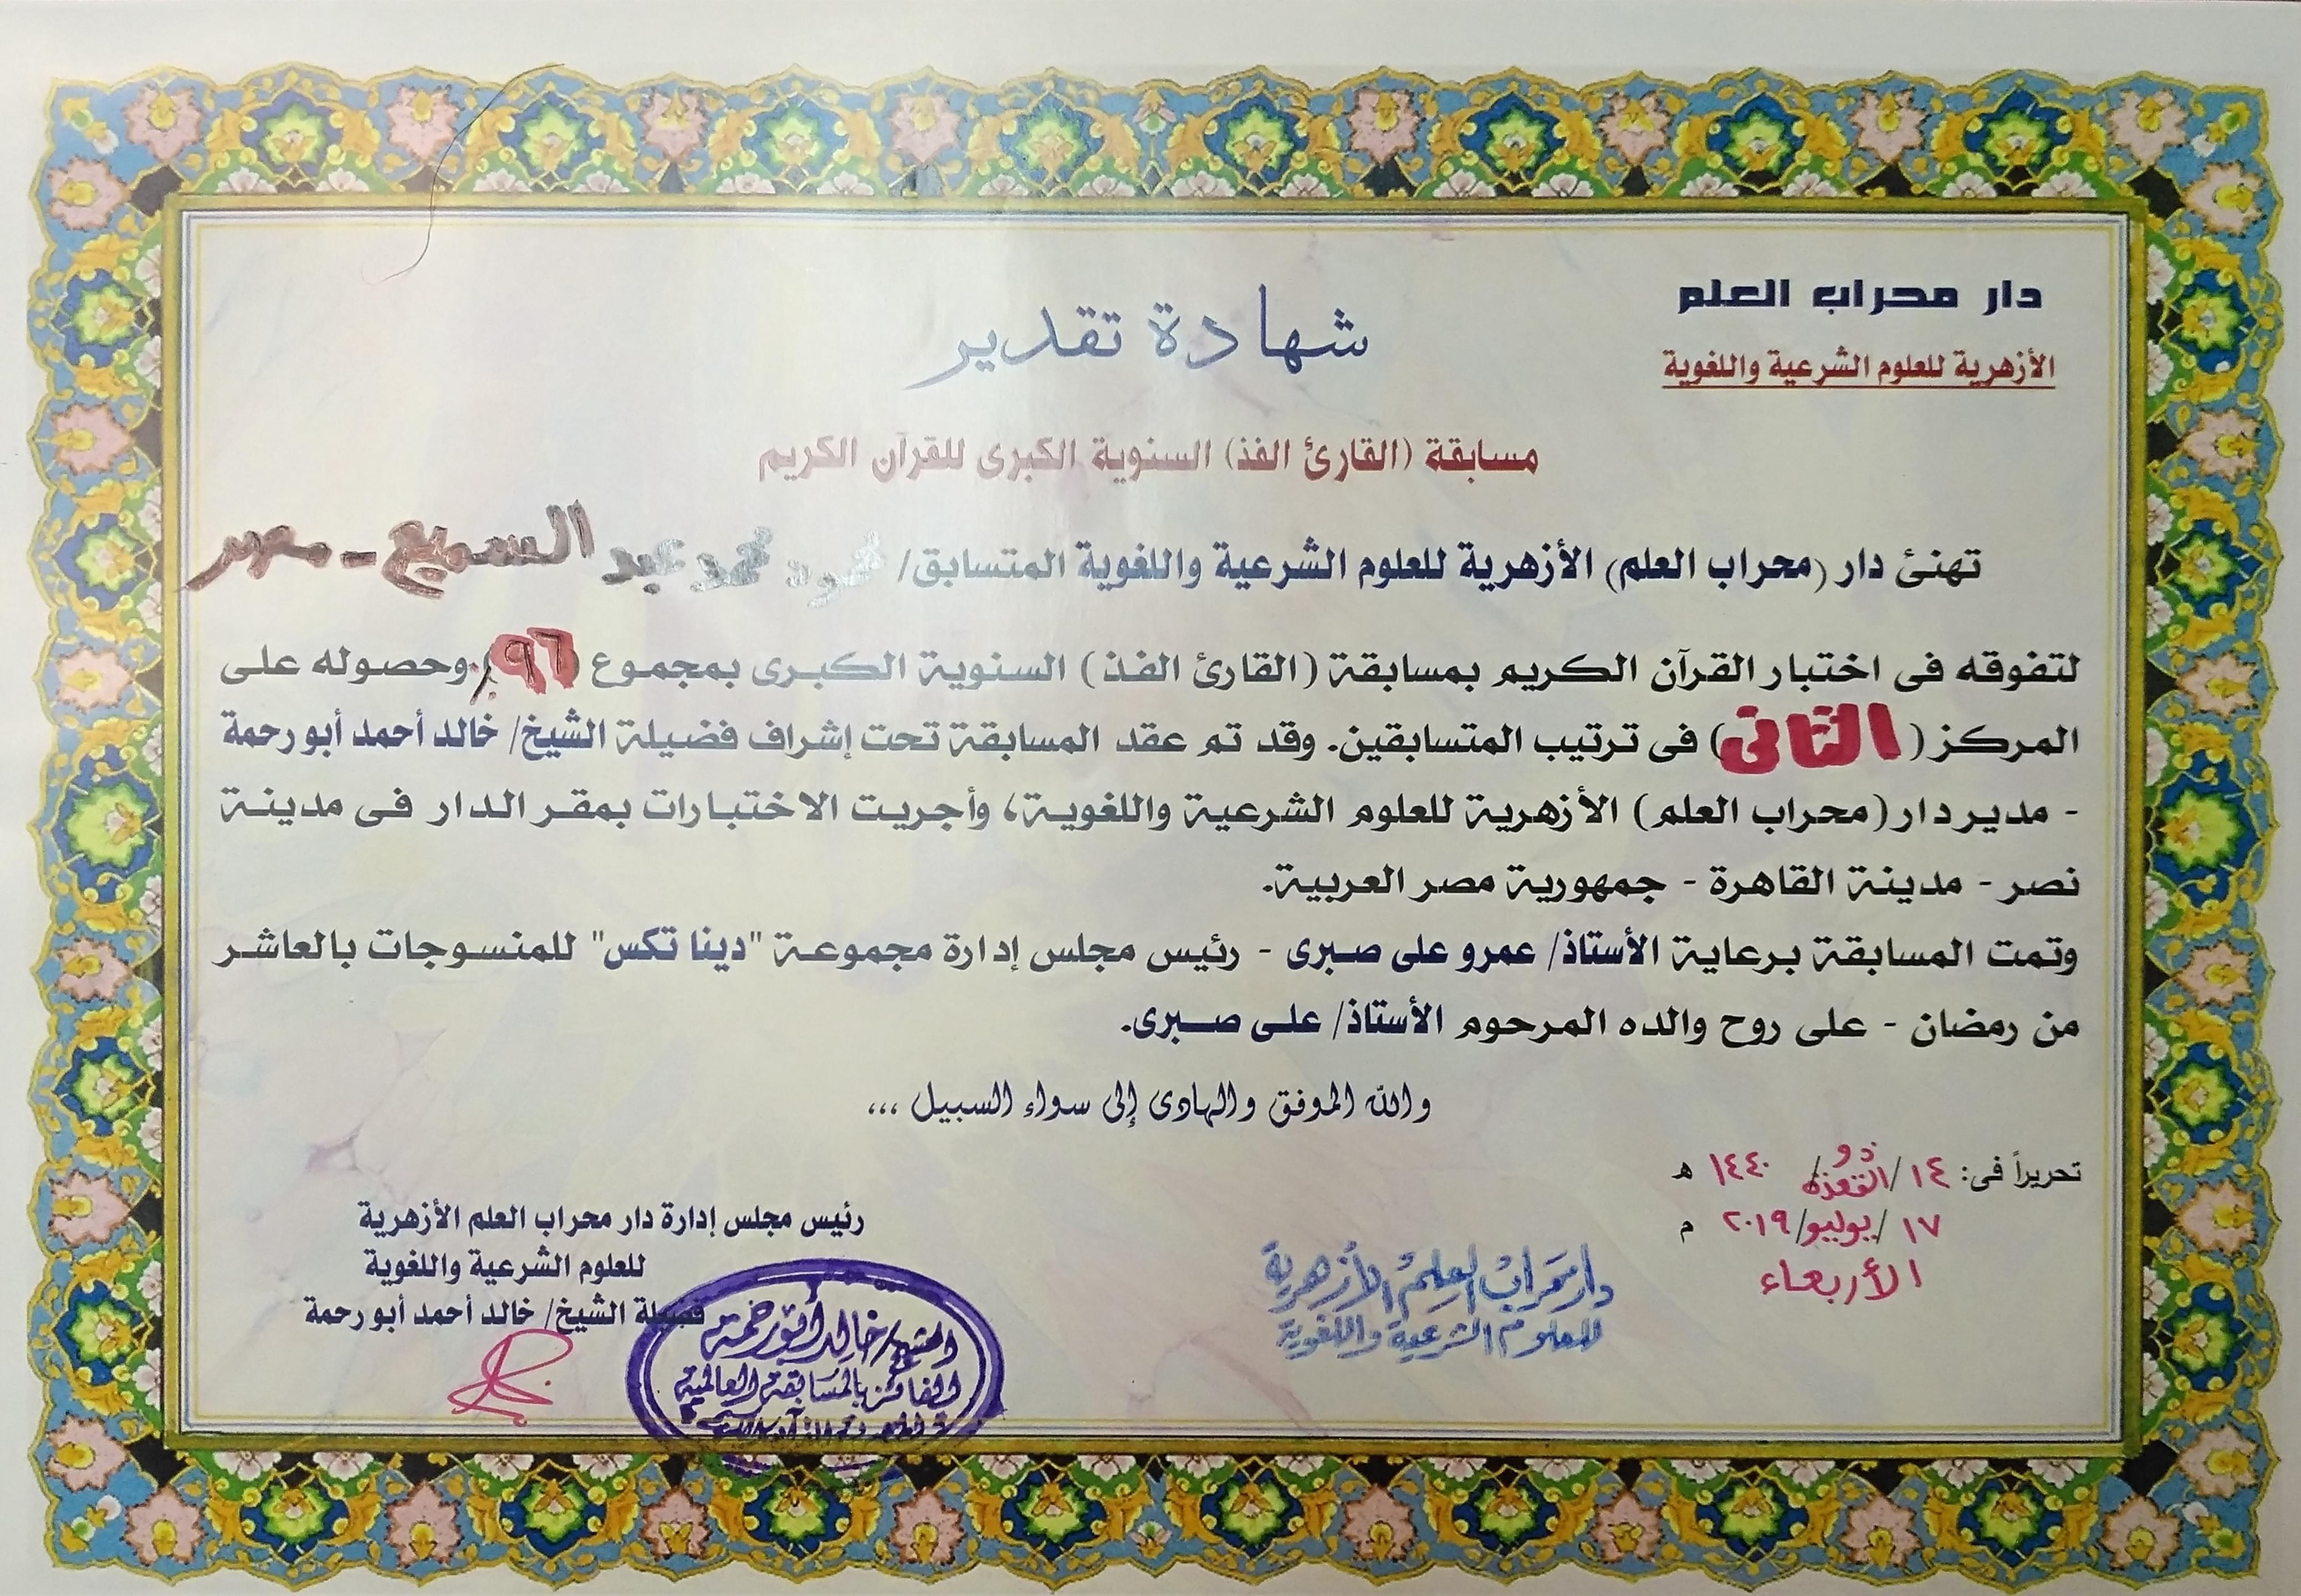 دار محراب العلم
الأزهرية للعلوم الشرعية واللغوية
شهادة تقدير
مسابقة (القارئ الفذ) السنوية الكبرى للقرآن الكريم
تهنئ دار (محراب العلم) الأزهرية للعلوم الشرعية واللغوية المتسابق/ محمود محمد عبد السميع - مصر
لتفوقه فى اختبار القرآن الكريم بمسابقة (القارئ الفذ) السنوية الكبرى بمجموع (٩٦٪) وحصوله على
المركز (الثانى) فى ترتيب المتسابقين. وقد تم عقد المسابقة تحت إشراف فضيلة الشيخ/ خالد أحمد أبو رحمة
- مدير دار (محراب العلم) الأزهرية للعلوم الشرعية واللغوية، وأجريت الاختبارات بمقر الدار فى مدينة
نصر - مدينة القاهرة - جمهورية مصر العربية.
وتمت المسابقة برعاية الأستاذ/ عمرو على صبرى - رئيس مجلس إدارة مجموعة "دينا تكس" للمنسوجات بالعاشر
من رمضان - على روح والده المرحوم الأستاذ/ على صبرى.
والله الموفق والهادى إلى سواء السبيل ،،،
تحريراً فى: ١٤ / ذو القعدة / ١٤٤٠ هـ
١٧ / يوليو / ٢٠١٩ م
الأربعاء
رئيس مجلس إدارة دار محراب العلم الأزهرية
للعلوم الشرعية واللغوية
فضيلة الشيخ/ خالد أحمد أبو رحمة
دار محراب العلم الأزهرية
للعلوم الشرعية واللغوية
الشيخ/ خالد أبو رحمة
الفائز بالمسابقة العالمية